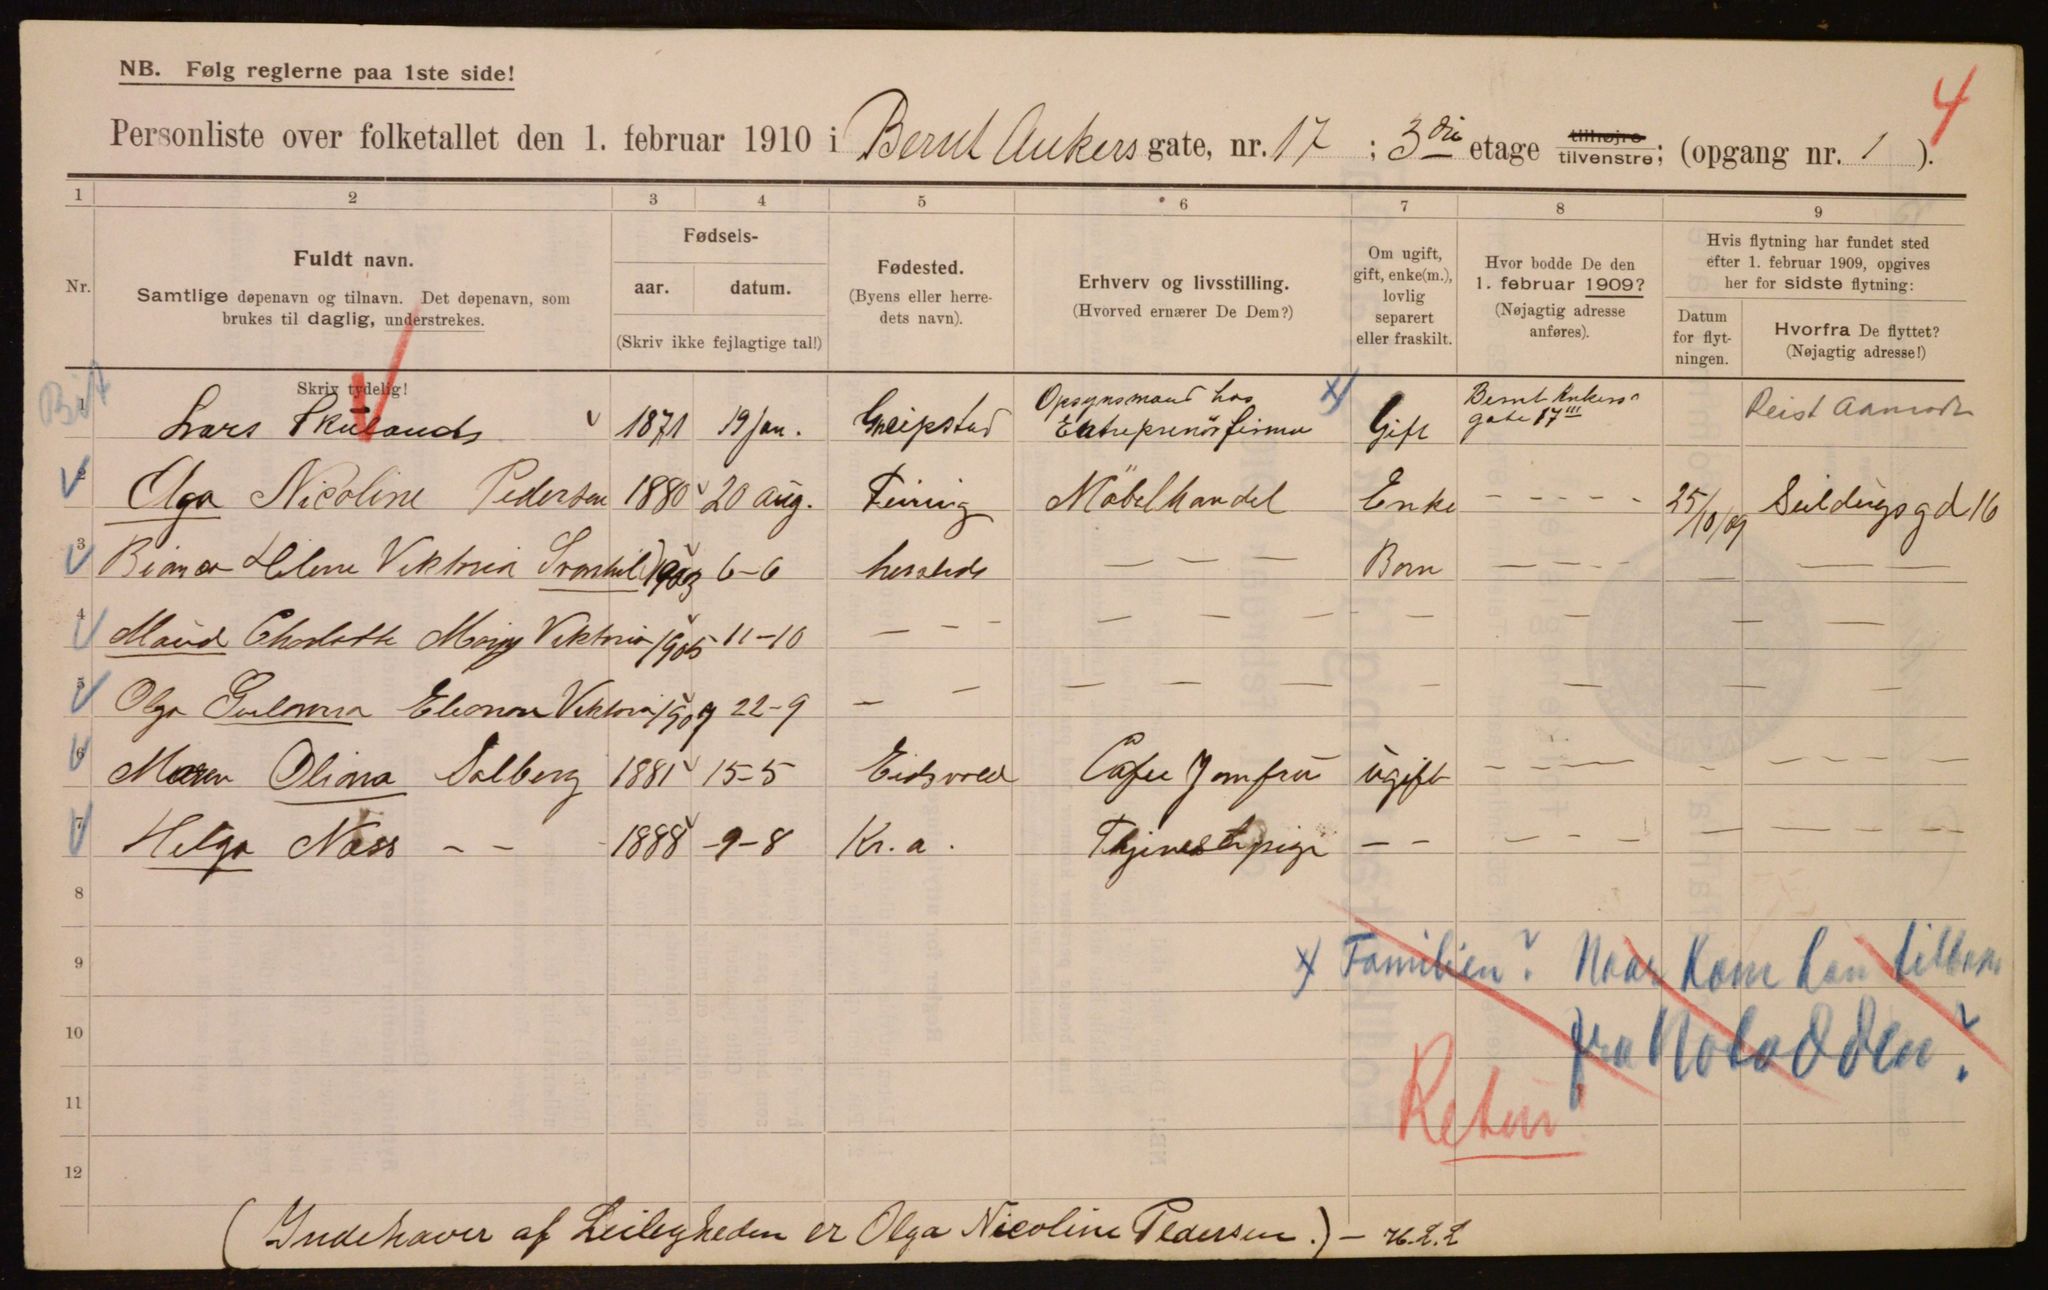 NB. Følg reglerne paa 1ste side!
4
Personliste over folketallet den 1. februar 1910 i Bernt Ankers gate, nr. 17 ; 3die etage tilhøjre tilvenstre; (opgang nr. 1 ).
1 2 3 4 5 6 7 8 9
Nr.
Fuldt navn.
Samtlige døpenavn og tilnavn. Det døpenavn, som
brukes til daglig, understrekes.
Skriv tydelig!
Fødsels-
aar. datum.
(Skriv ikke fejlagtige tal!)
Fødested.
(Byens eller herre-
dets navn).
Erhverv og livsstilling.
(Hvorved ernærer De Dem?)
Om ugift,
gift, enke(m.),
lovlig
separert
eller fraskilt.
Hvor bodde De den
1. februar 1909?
(Nøjagtig adresse
anføres).
Hvis flytning har fundet sted
efter 1. februar 1909, opgives
her for sidste flytning:
Datum
for flyt-
ningen.
Hvorfra De flyttet?
(Nøjagtig adresse!)
1 Lars 1871 19 jan. Opsynsmand hos Entreprenörfirma Gift Bernt Ankers gate 17 III Reist
2 Olga Nicoline Pedersen 1880 20 aug. Feiring Möbelhandel Enke - - - - - 25/10/09 16
3 Helene Viktoria 1903 6-6 - - - - - - - - -
4 Maud Charlotte Viktoria 1905 11-10 - - -
5 Olga Viktoria 22-9 - -
6 Maren Olina Solberg 1881 15-5 Eidsvold Cafee Jomfru ugift - - - -
7 Helga Næss - - 1888 -9-8 Kr.a. Tjenestepige - -
8
9
10
11
12
x) Familien? Naar kom han tilbake
fra Notodden?
Retur!
(Indehaver af Leiligheden er Olga Nicoline Pedersen.) -